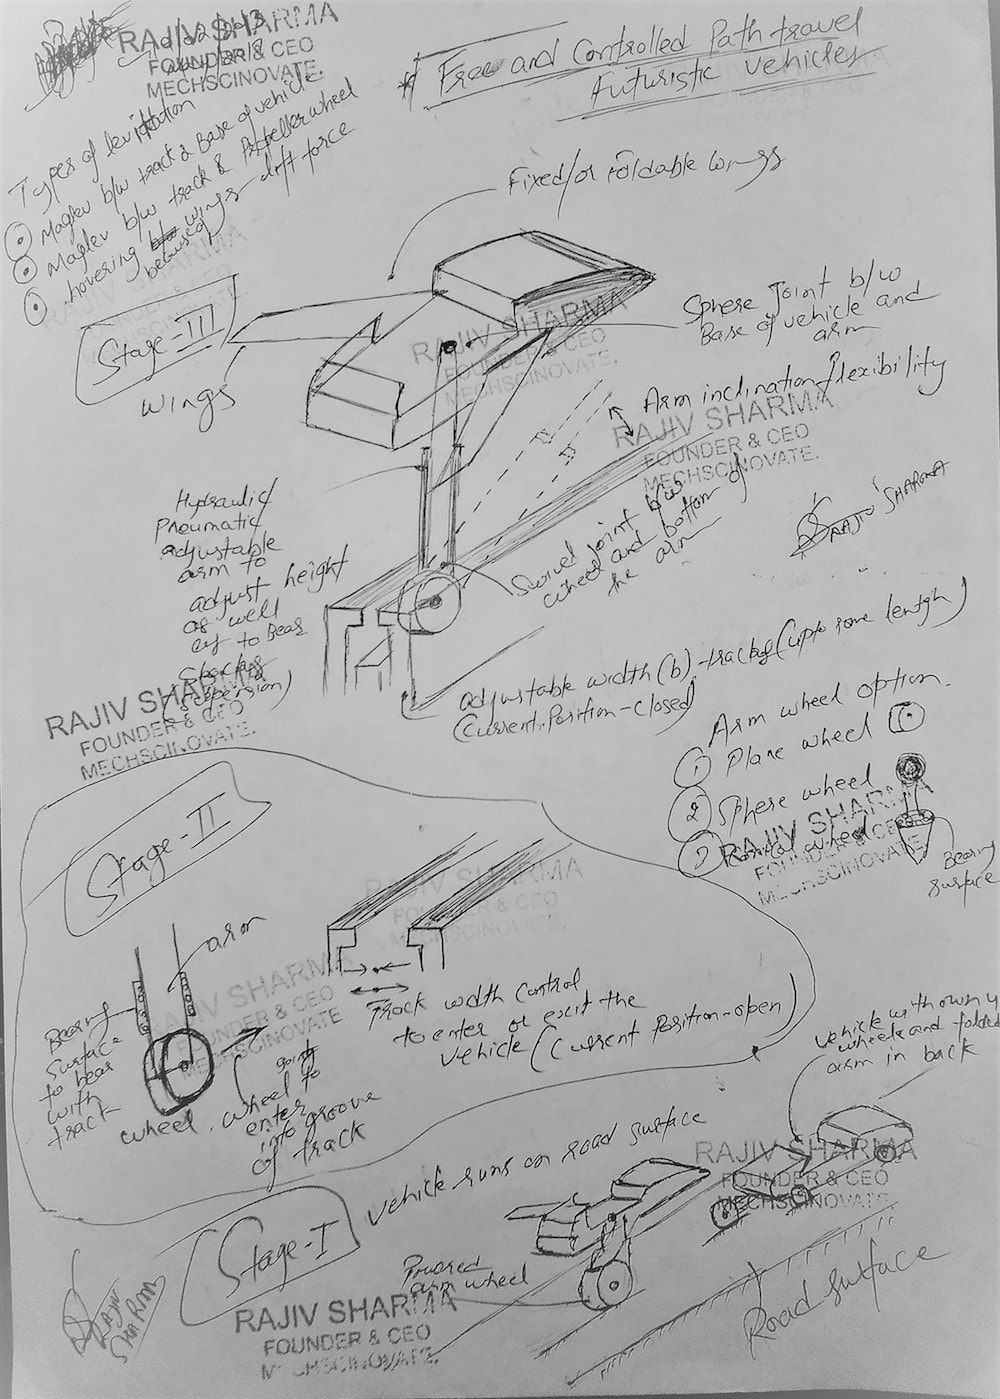 RAJIV SHARMA
FOUNDER & CEO
MECHSCINOVATE.
* Free and Controlled Path travel
Futuristic vehicles
Types of levitation
Maglev b/w track & Base of vehicle
Maglev b/w track & Propeller wheel
hovering wings lift force
Fixed/or Foldable wings
Stage-III
wings
Sphere Joint b/w
Base of vehicle and
arm
RAJIV SHARMA
FOUNDER & CEO
MECHSCINOVATE.
Arm inclination flexibility
RAJIV SHARMA
FOUNDER & CEO
MECHSCINOVATE.
RAJIV SHARMA
Hydraulic/
Pneumatic
adjustable
arm to
adjust height
as well
as to Bear
Swivel Joint b/w
wheel and bottom of
the arm
RAJIV SHARMA
FOUNDER & CEO
MECHSCINOVATE.
adjustable width (b)-track (upto some length)
(Current Position-closed)
Arm wheel option.
① Plane wheel
② Sphere wheel
wheel
RAJIV SHARMA
FOUNDER & CEO
MECHSCINOVATE.
Bearing
surface
Stage-II
arm
Bearing
surface
to bear
with
track
wheel.
wheel to
enter
into groove
of track
RAJIV SHARMA
FOUNDER & CEO
MECHSCINOVATE.
RAJIV SHARMA
FOUNDER & CEO
MECHSCINOVATE.
Track width Control
to enter or exit the
vehicle (Current Position-open)
vehicle with own 4
wheels and folded
arm in back
Stage-I
vehicle runs on road surface
Powered
arm wheel
RAJIV SHARMA
FOUNDER & CEO
MECHSCINOVATE.
Road surface
RAJIV
SHARMA
RAJIV SHARMA
FOUNDER & CEO
MECHSCINOVATE.